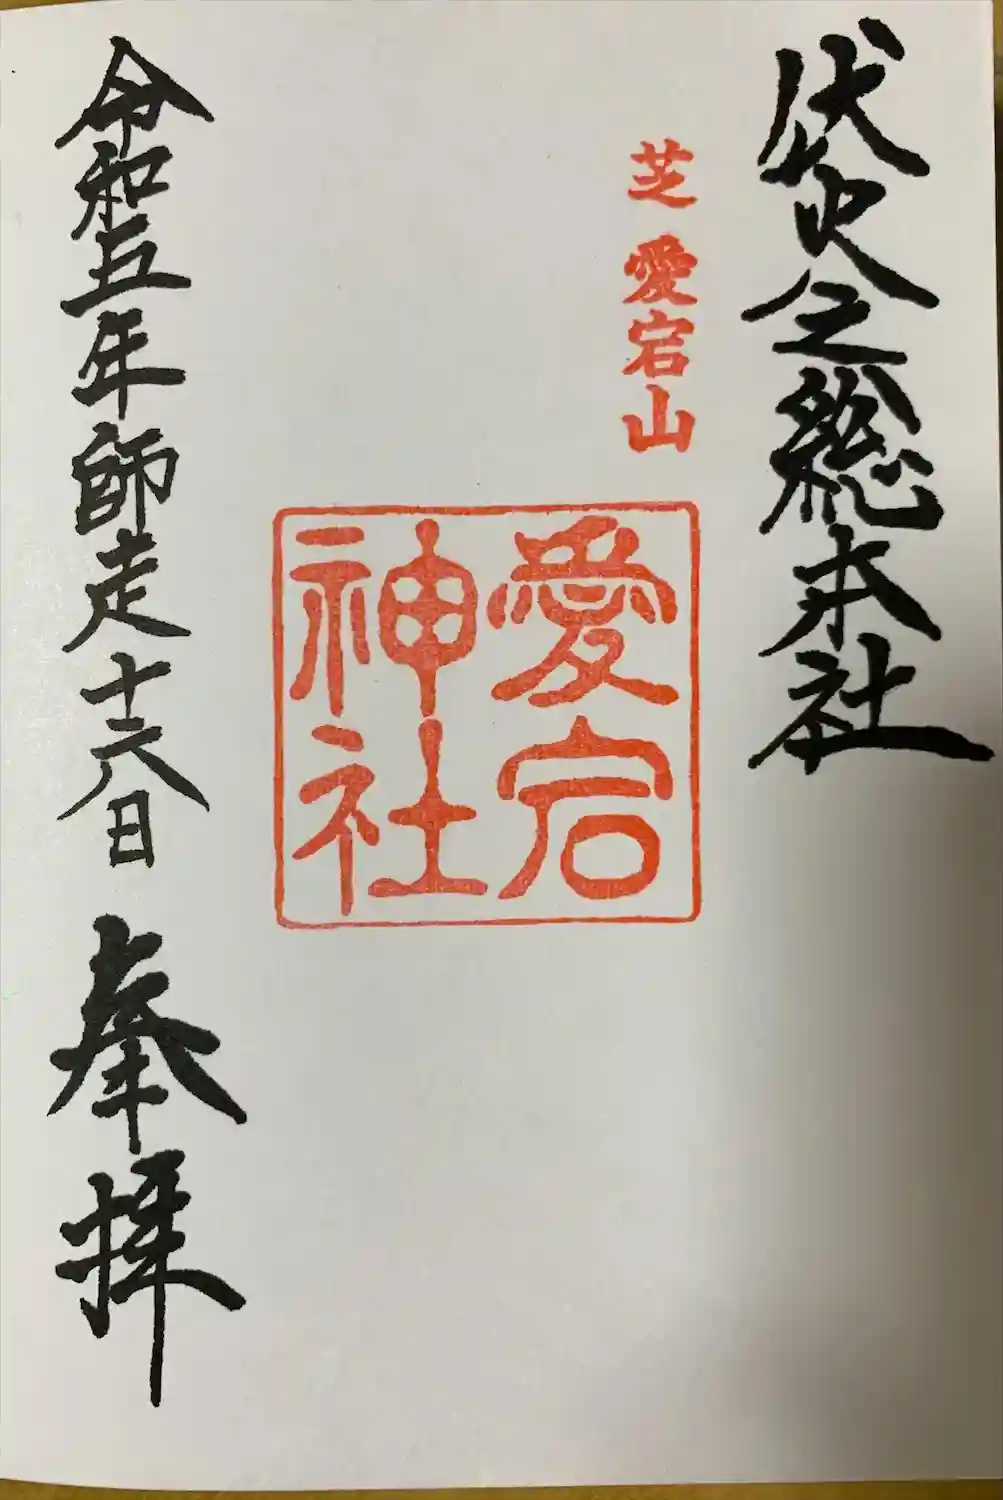 伏火之総本社
芝 愛宕山
愛宕
神社
令和五年師走十六日 奉拝